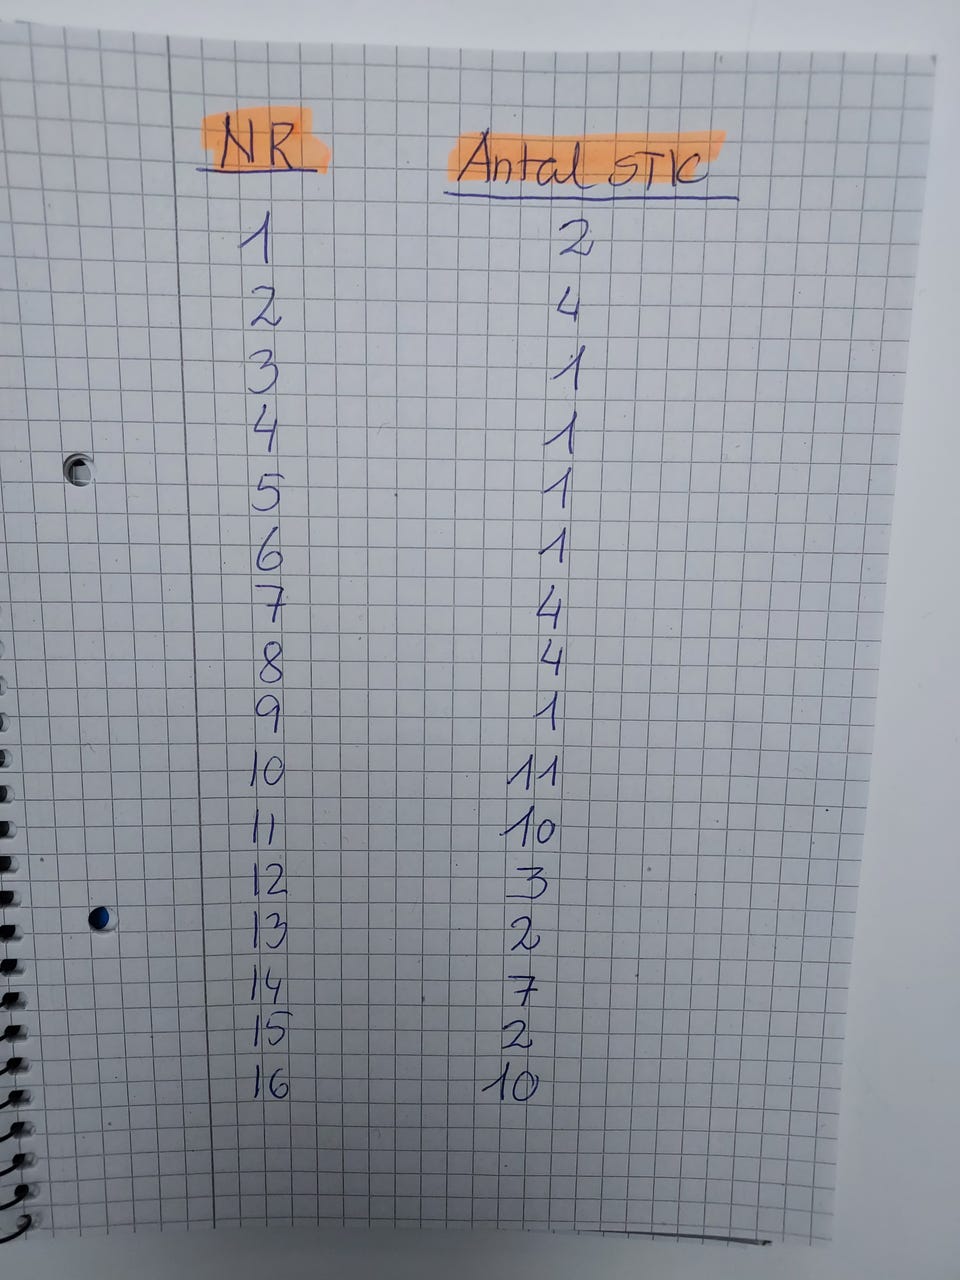 NR Antal STK
1 2
2 4
3 1
4 1
5 1
6 1
7 4
8 4
9 1
10 11
11 10
12 3
13 2
14 7
15 2
16 10